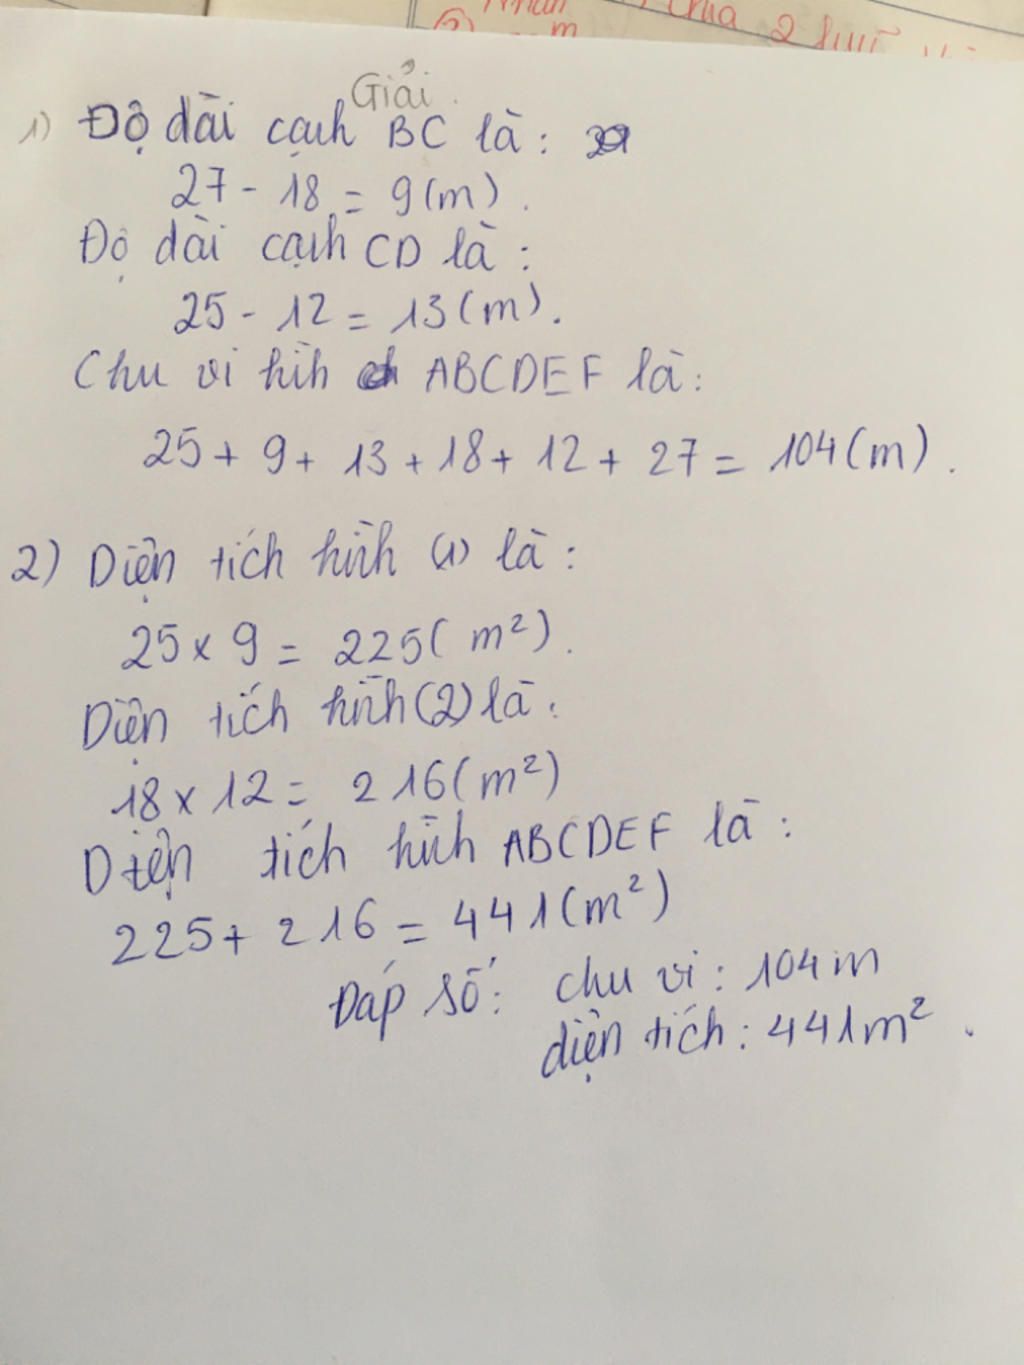 Nhân
chia 2
(2)
m
Giải.
1) Độ dài cạnh BC là:
27 - 18 = 9 (m).
Độ dài cạnh CD là:
25 - 12 = 13 (m).
Chu vi hình ABCDEF là:
25 + 9 + 13 + 18 + 12 + 27 = 104 (m).
2) Diện tích hình (1) là:
25 x 9 = 225 (m²).
Diện tích hình (2) là:
18 x 12 = 216 (m²)
Diện tích hình ABCDEF là:
225 + 216 = 441 (m²)
Đáp số: chu vi: 104m
diện tích: 441m².